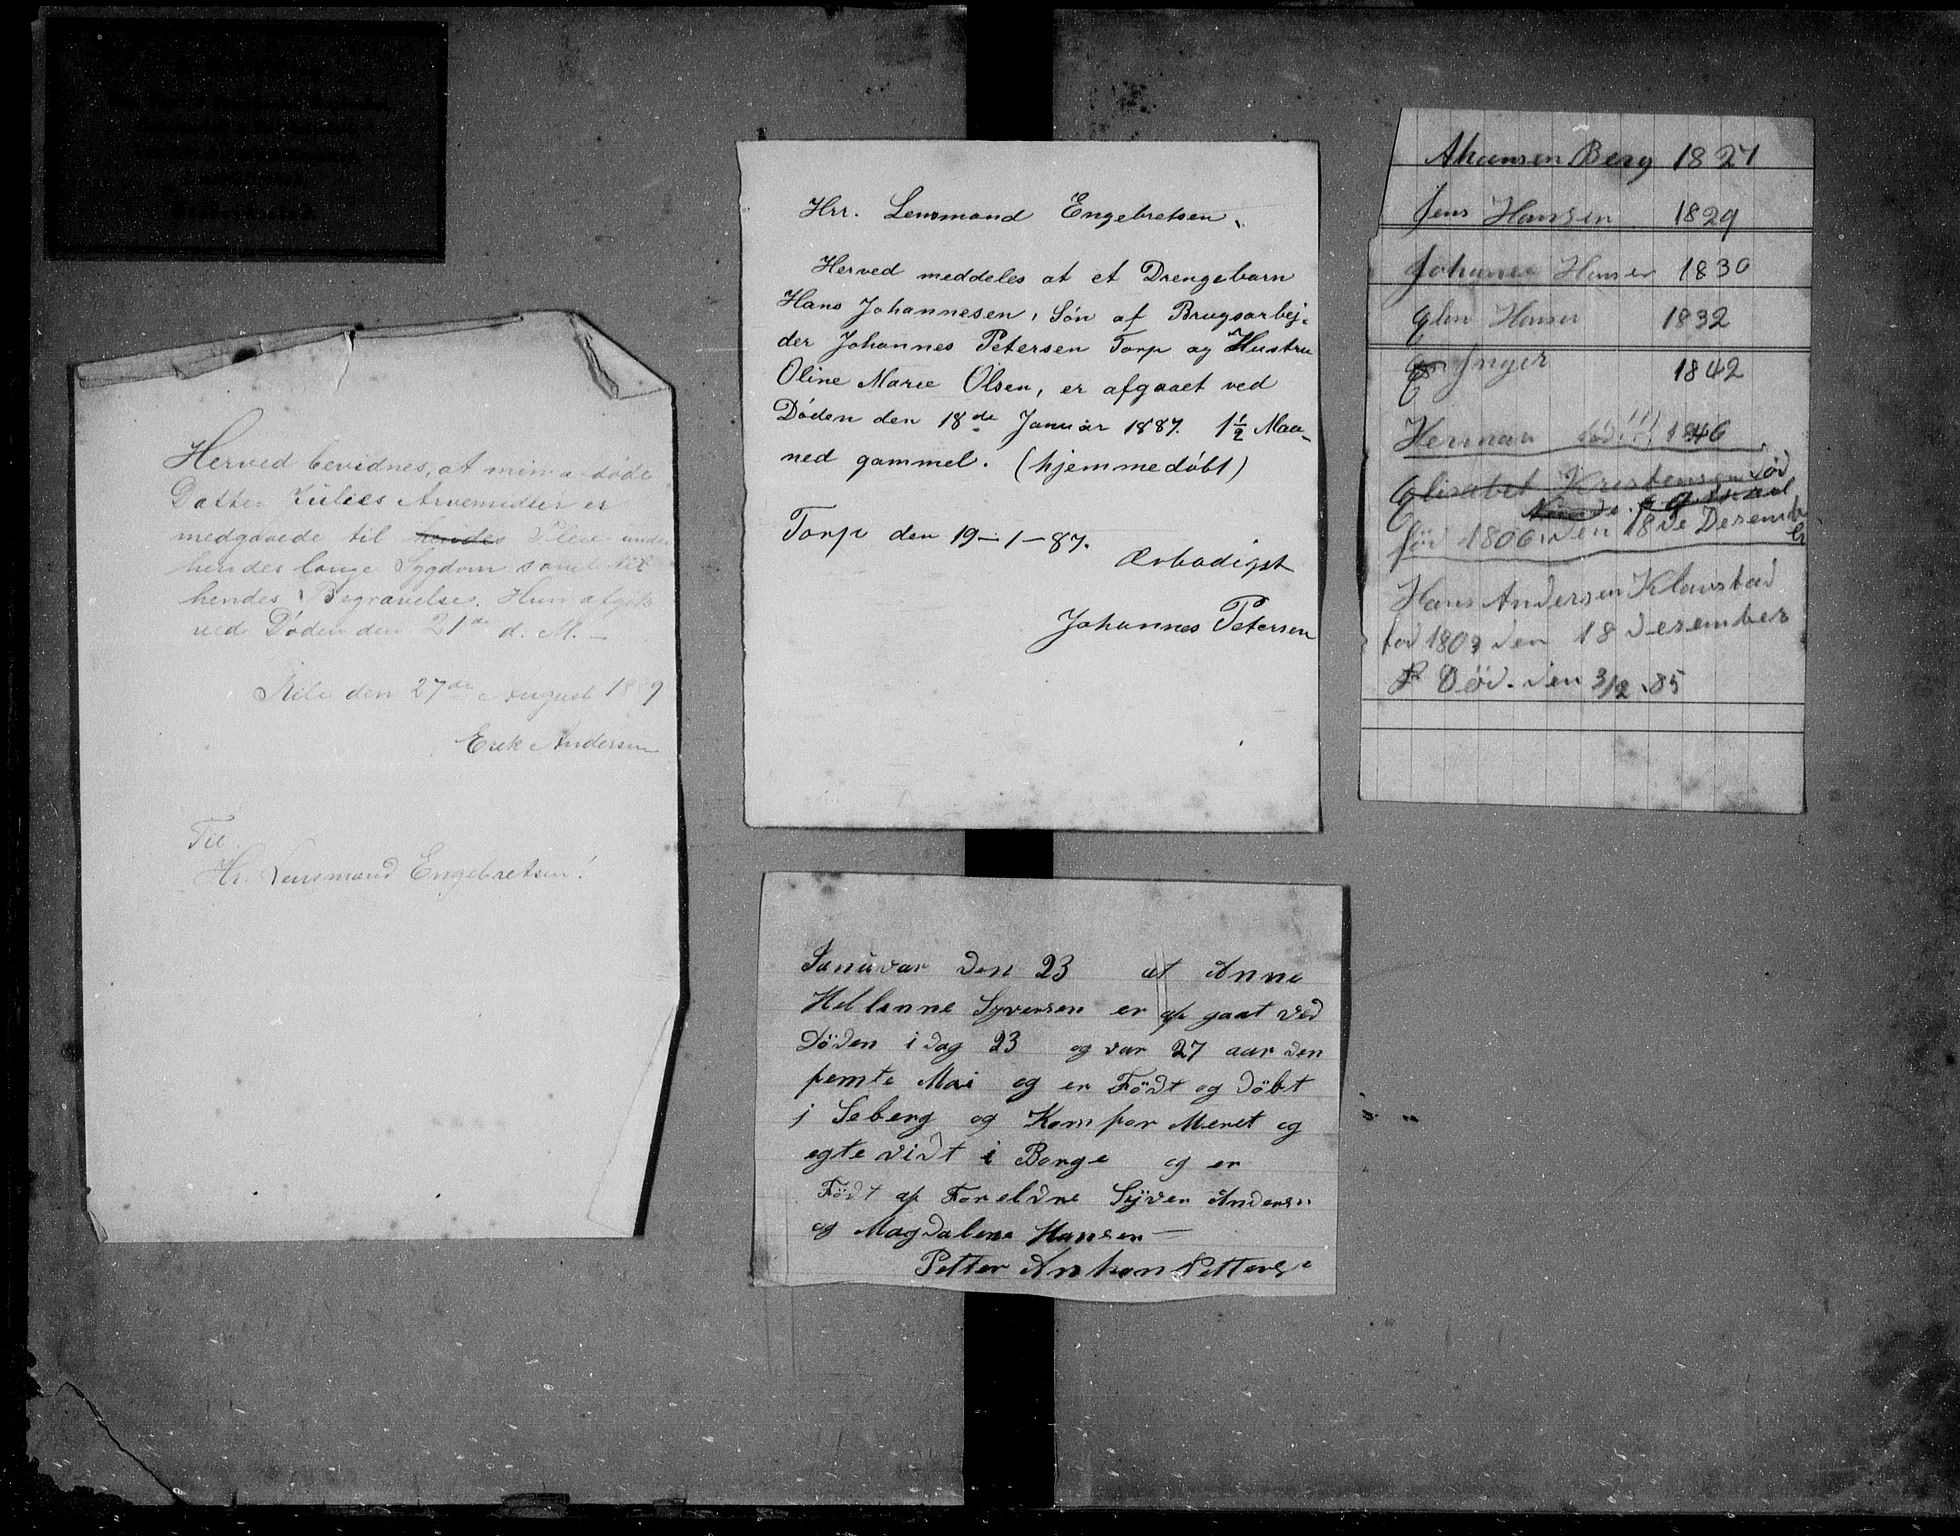 Herved bevidnes, at min a døde
Datter Julies Arvemidler er
medgaaede til hendes Pleie under
hendes lange Sygdom samt til
hendes Begravelse. Hun afgik
ved Døden den 21de d. M. —
den 27de August 1889
Erik Andersen
Til
Hr. Lensmand Engebretsen!
Hrr. Lensmand Engebretsen,
Herved meddeles at et Drengebarn
Hans Johannesen, Søn af Brugsarbej-
der Johannes Petersen Torp og Hustru
Oline Marie Olsen, er afgaaet ved
Døden den 18de Januar 1887. 1½ Maa-
ned gammel. (hjemmedøbt)
Torp den 19-1-87.
Ærbødigst
Johannes Petersen
Januvar den 23 at Anne
Hellenne Syversen er af gaat ved
Döden i dag 23 og var 27 aar den
femte Mai og er Födt og döbt
i Seberg og Komfor Meret og
egte vidt i Borge og er
Födt af Foreldre Syver Anders
og Magdalene Hansen —
Petter Anthon Petters
Ahansen Berg 1827
Jens Hansen 1829
Johanes Hansen 1830
Elen Hansen 1832
Inger 1842
Herman 1846
Elisabet Kristensen död
föd 1806 den 18de Desemb
er
Hans Andersen Klavstad
föd 1803 den 18 desember
Död. den 3/2 .85